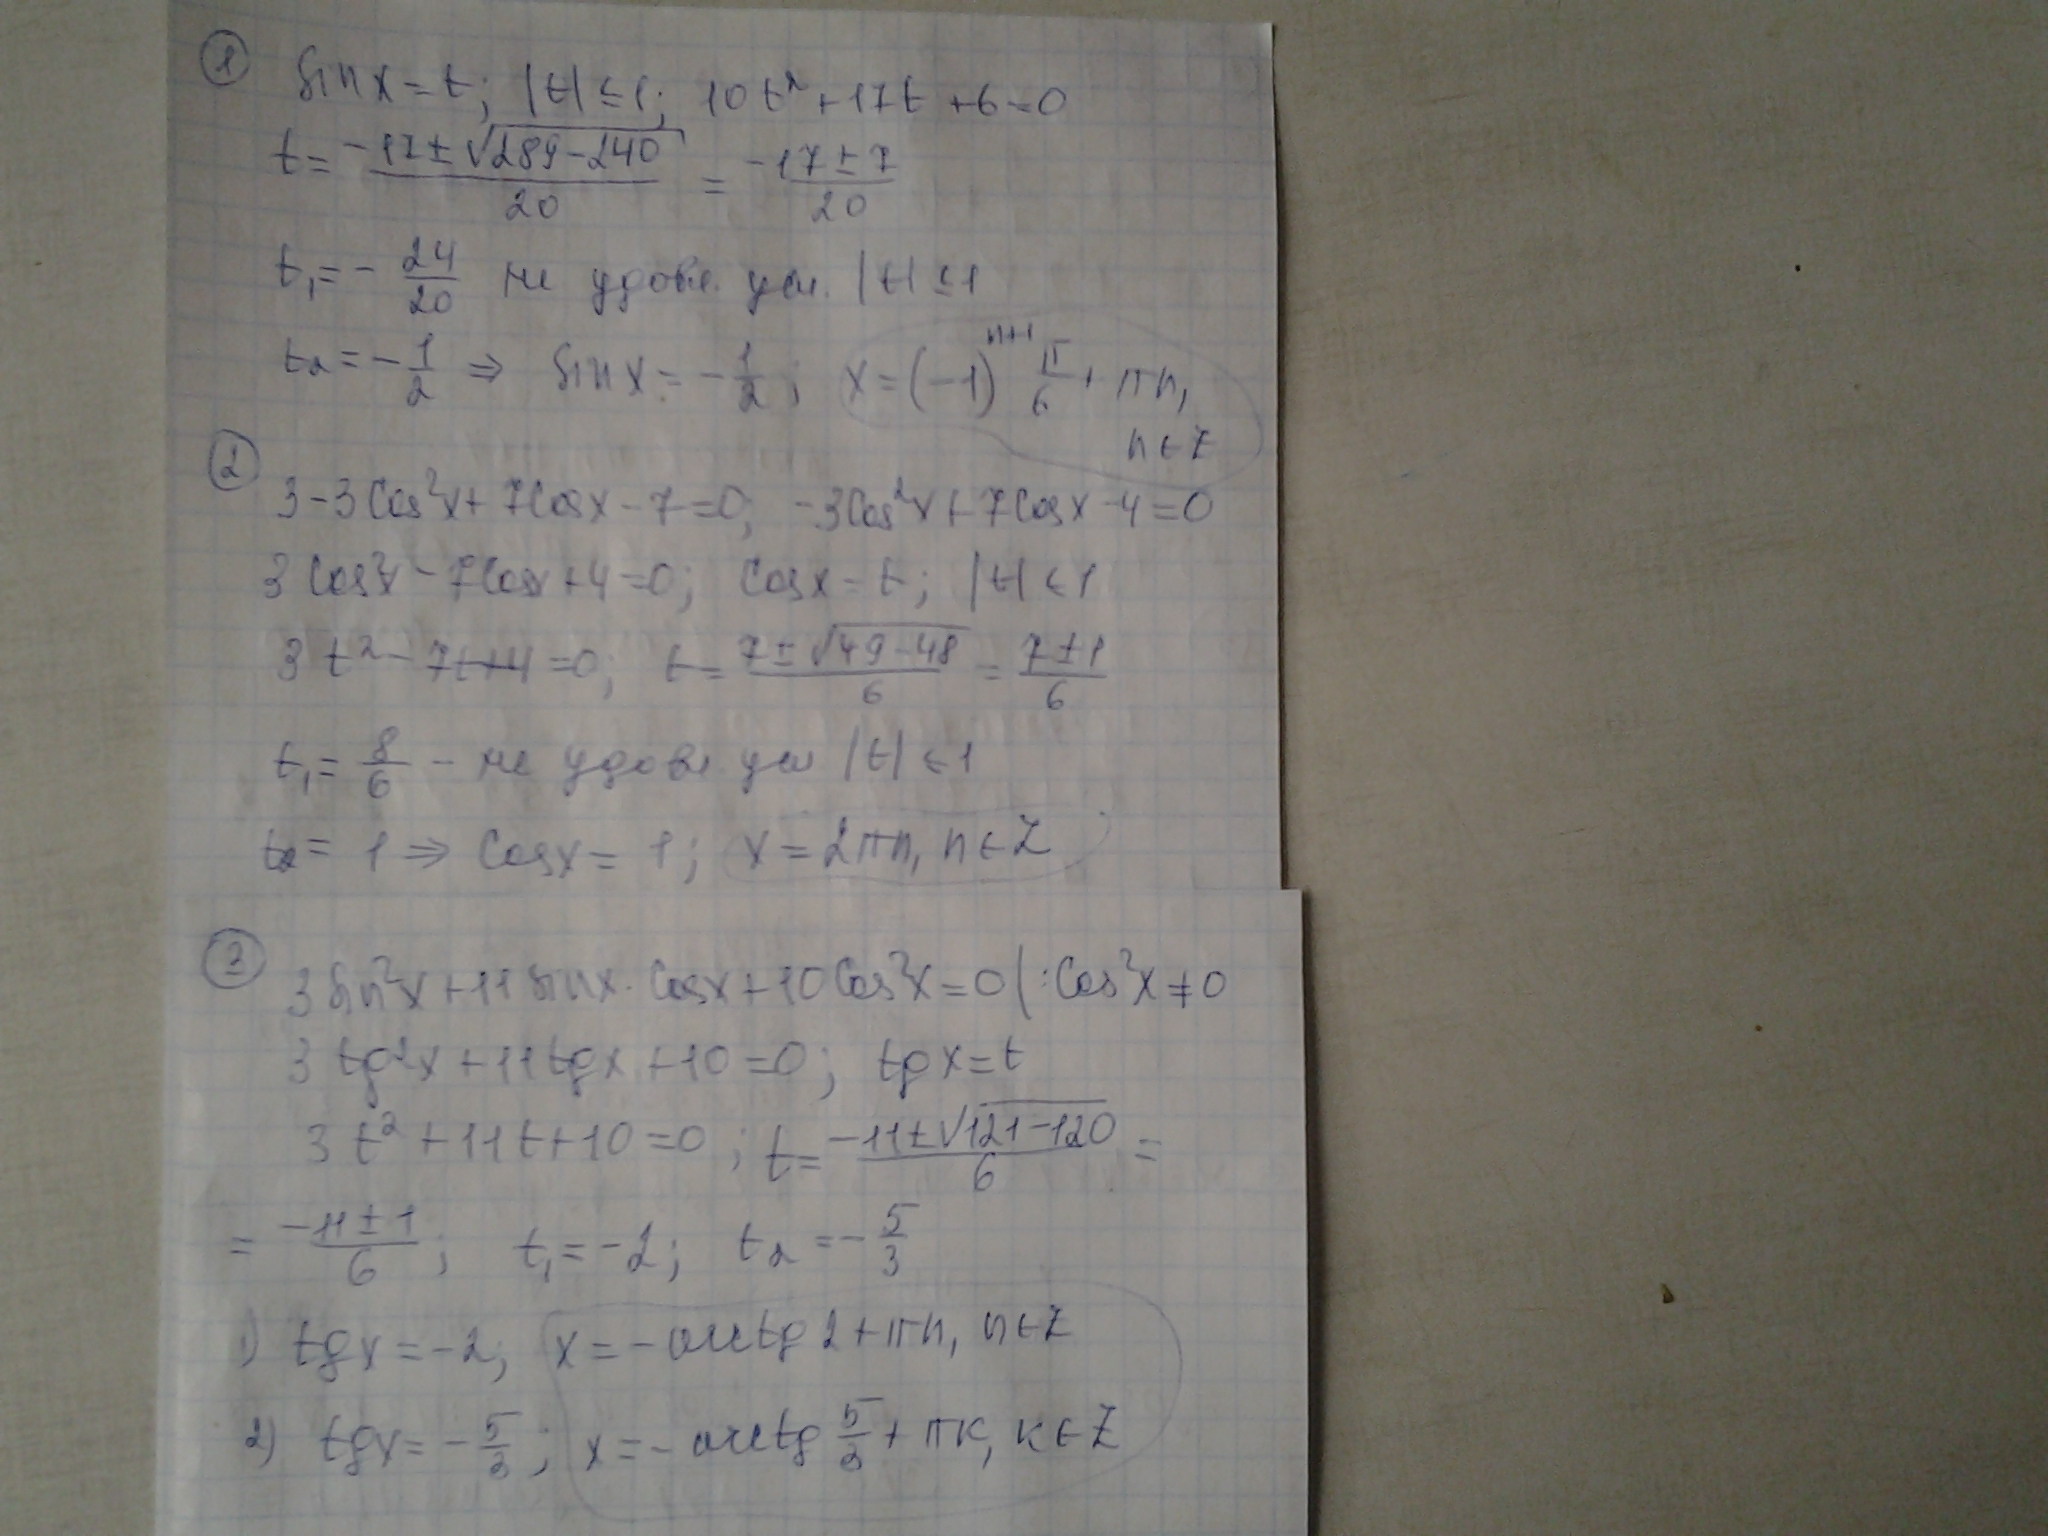 1
sin x = t; |t| ≤ 1; 10t² + 17t + 6 = 0
t = (-17 ± √(289-240))/20 = (-17 ± 7)/20
t₁ = -24/20 не удовл. усл. |t| ≤ 1
t₂ = -1/2 ⇒ sin x = -1/2; x = (-1)ⁿ⁺¹ π/6 + πn,
n ∈ Z
2
3 - 3cos²x + 7cosx - 7 = 0; -3cos²x + 7cosx - 4 = 0
3cos²x - 7cosx + 4 = 0; cosx = t; |t| ≤ 1
3t² - 7t + 4 = 0; t = (7 ± √(49-48))/6 = (7 ± 1)/6
t₁ = 8/6 - не удовл усл |t| ≤ 1
t₂ = 1 ⇒ cosx = 1; x = 2πn, n ∈ Z
3
3sin²x + 11sinx · cosx + 10cos²x = 0 | : cos²x ≠ 0
3tg²x + 11tgx + 10 = 0; tgx = t
3t² + 11t + 10 = 0; t = (-11 ± √(121-120))/6 =
= (-11 ± 1)/6; t₁ = -2; t₂ = -5/3
1) tgx = -2; x = -arctg 2 + πn, n ∈ Z
2) tgx = -5/3; x = -arctg 5/3 + πк, к ∈ Z